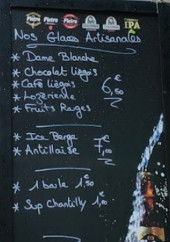 IPA
Nos Glaces Artisanales
* Dame Blanche
* Chocolat liégois
* Café liégois 6,50 €
* Lozérienne
* Fruits Rouges
* Ice Berge
* Antillaise 7,00 €
* 1 boule 1€50
* Sup Chantilly 1€00